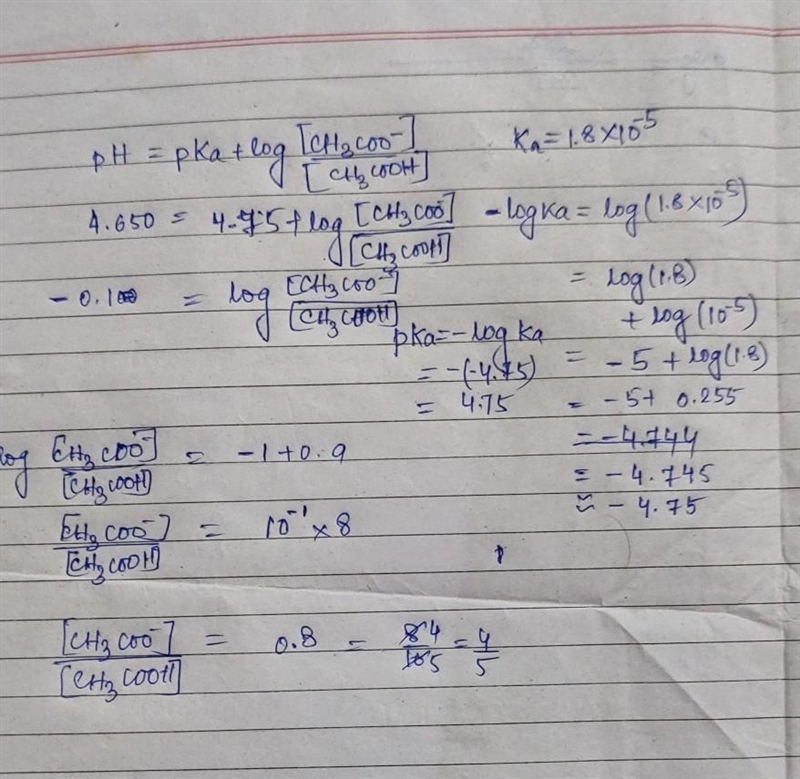 pH = pKa + log [CH3COO⁻] / [CH3COOH]
Ka = 1.8 × 10⁻⁵
4.650 = 4.75 + log [CH3COO⁻] / [CH3COOH]
-log Ka = log(1.8 × 10⁻⁵)
-0.100 = log [CH3COO⁻] / [CH3COOH]
= log(1.8)
+ log(10⁻⁵)
pKa = -log Ka
= -5 + log(1.8)
= -(-4.75)
= 4.75
= -5 + 0.255
= -4.744
= -4.745
≈ -4.75
log [CH3COO⁻] / [CH3COOH] = -1 + 0.9
[CH3COO⁻] / [CH3COOH] = 10⁻¹ × 8
[CH3COO⁻] / [CH3COOH] = 0.8 = 8 4 / 10 5 = 4 / 5